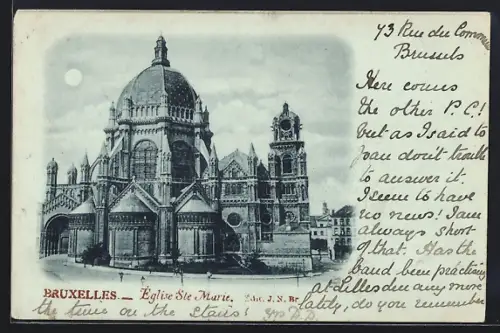 73 Rue du Commerce
Brussels
Here comes
the other P.C!
but as I said to
you don't trouble
to answer it.
I seem to have
no news! I am
always short
of that. Has the
band been practising
at Selles den any more
lately, do you remember
BRUXELLES _ Église Ste Marie. Edit. J. N. Br
the time on the stairs!